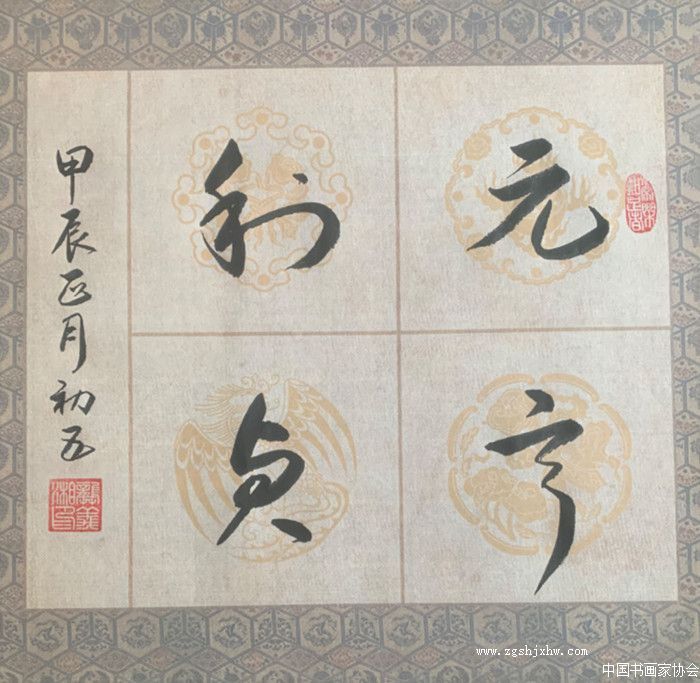 元亨
利贞
甲辰正月初五
www.zgshjxhw.com
中国书画家协会